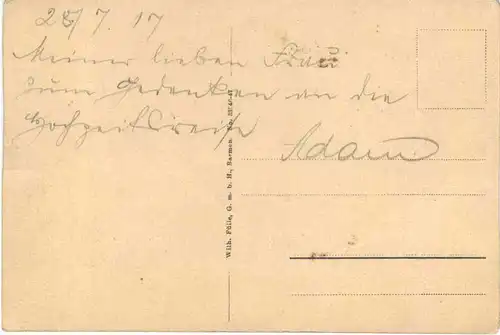 28/7.17
Meiner lieben Frau
zum Gedenken an die
Hochzeitsreise
Adam
Wilh. Fülle, G. m. b. H., Barmen